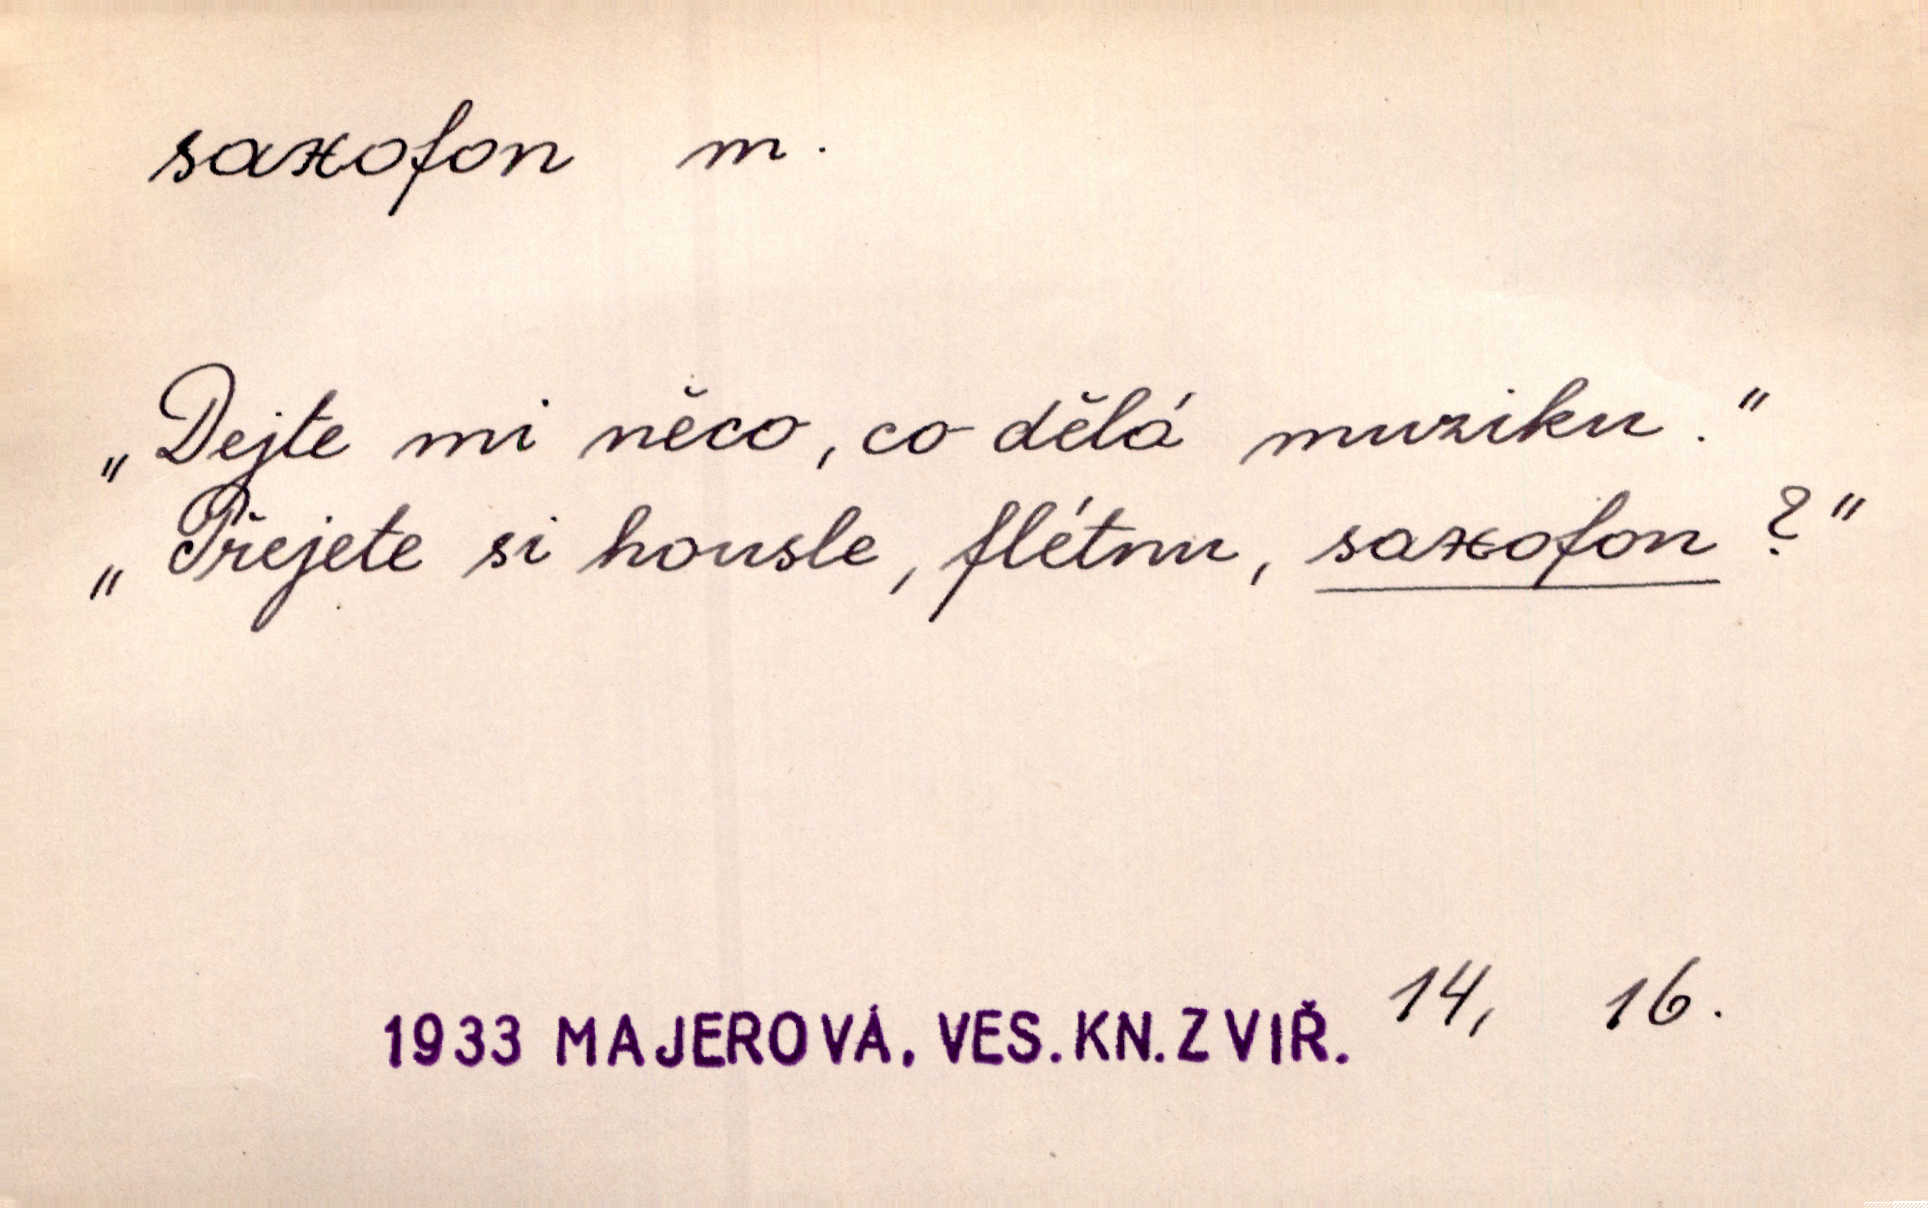 saxofon m.
„Dejte mi něco, co dělá muziku."
„Přejete si housle, flétnu, saxofon?"
1933 MAJEROVÁ, VES. KN. ZVIŘ. 14, 16.